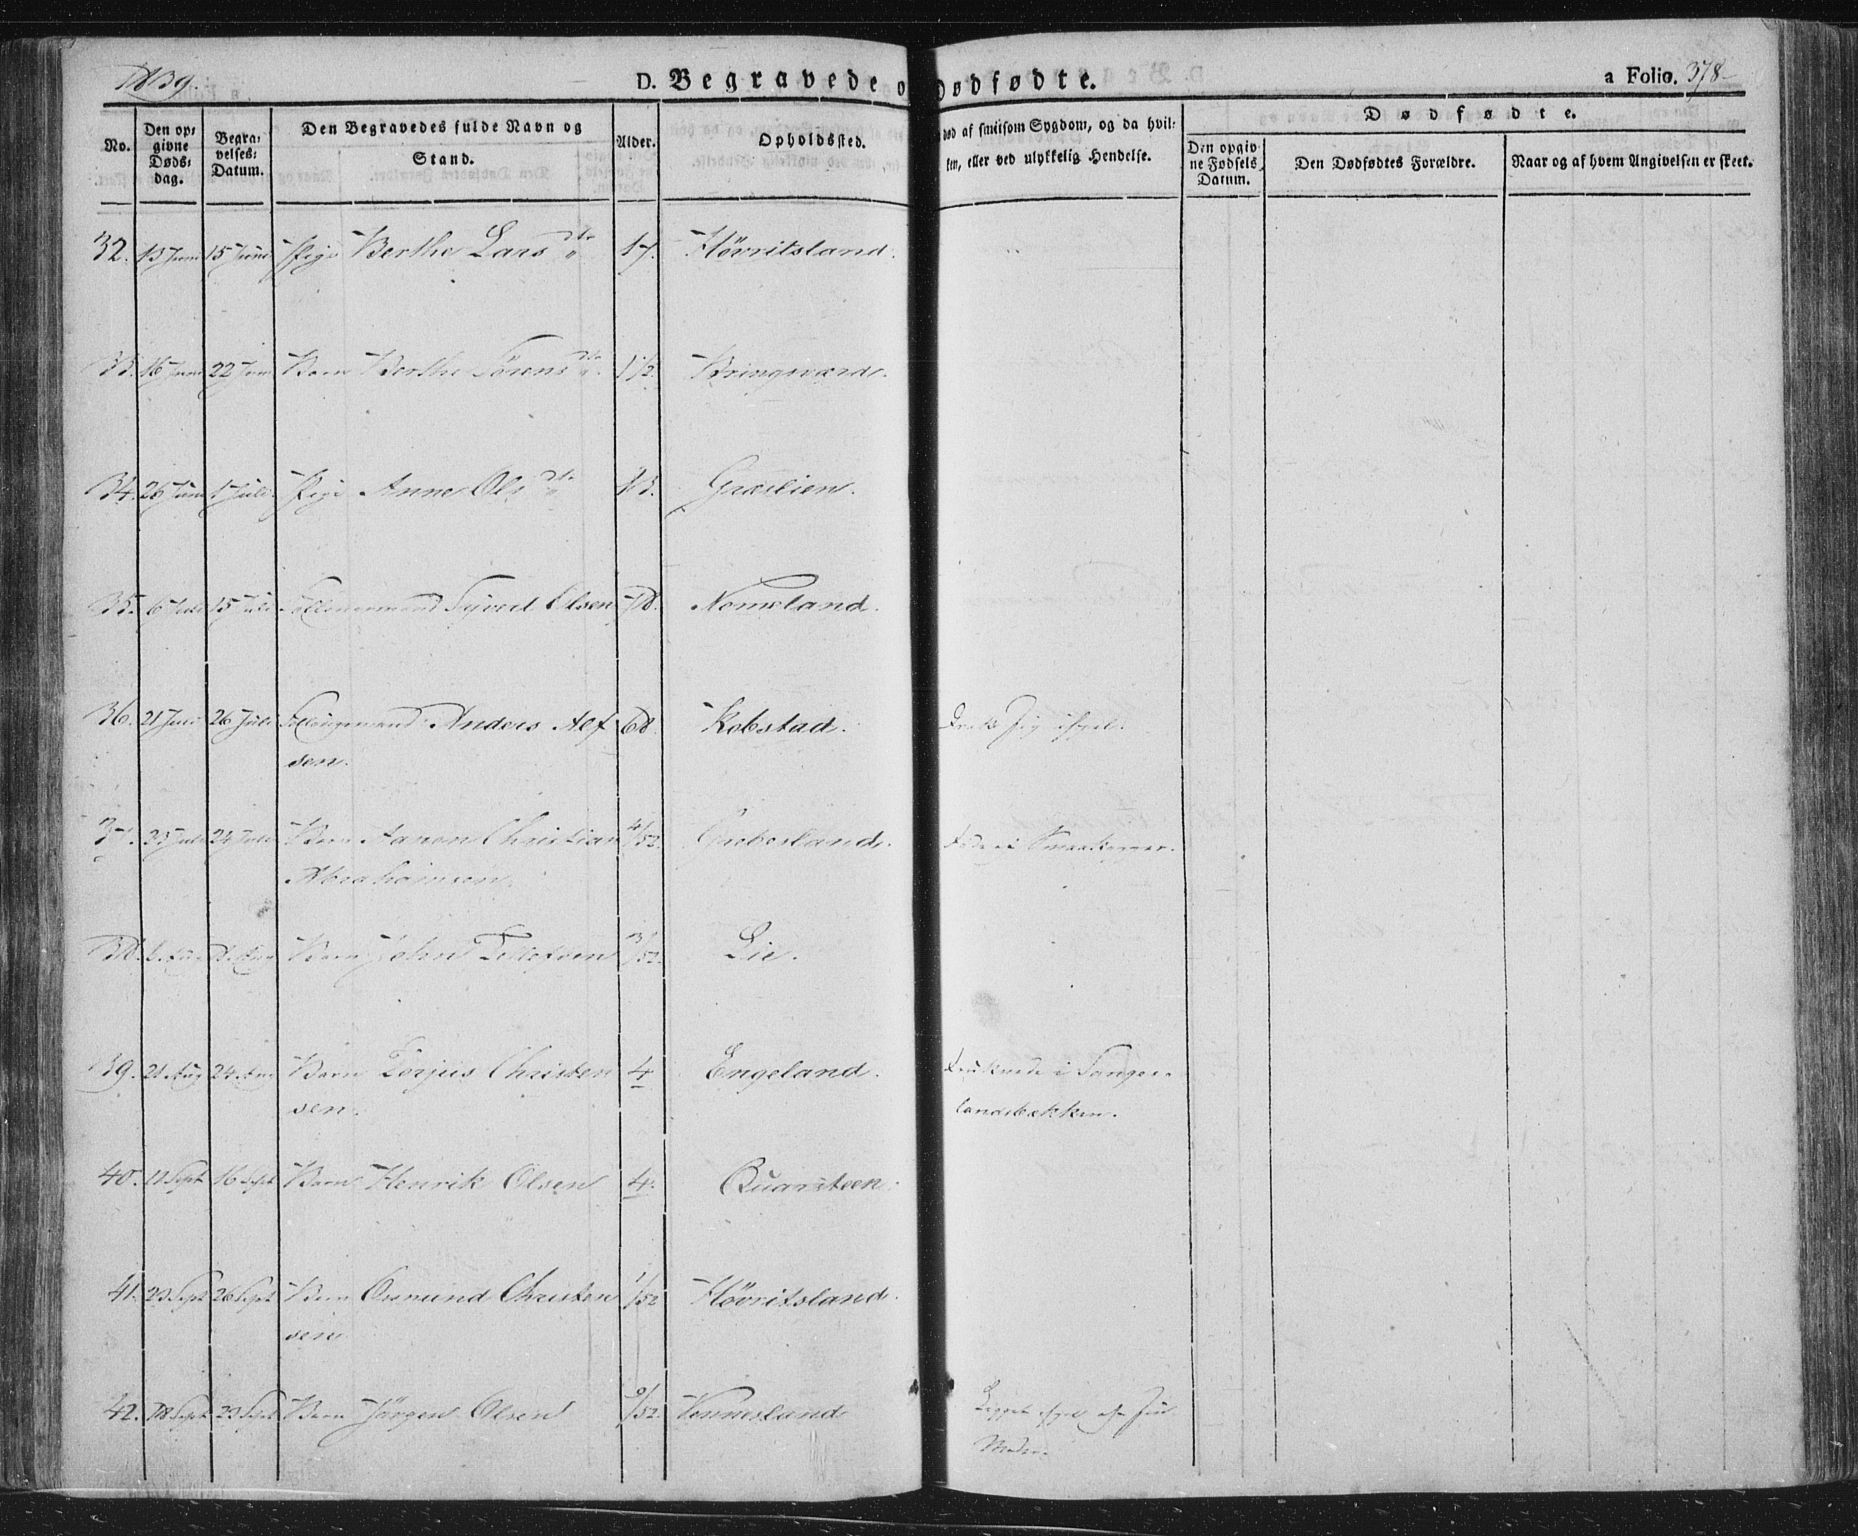 1839.
D. Begravede o Dødfødte.
a Folio. 378
No.
Den op:
givne
Døds:
dag.
Begra:
velses:
Datum.
Den Begravedes fulde Navn og
Stand.
Alder.
Opholdssted.
død af smitsom Sygdom, og da hvil:
ken, eller ved ulykkelig Hendelse.
Dødfødte.
Den opgiv:
ne Fødsels
Datum.
Den Dødfødtes Forældre.
Naar og af hvem Angivelsen er skeet.
32. 13 Juni 15 Juni Pige Berthe Larsdtr 17. Hövritsland.
33. 16 Juni 22 Juni Barn Berthe Sörensdtr 1 1/2. Bringsværd.
34. 26 Juni 1 Juli Pige Anne Olsdtr 13. Græslien.
35. 6 Juli 15 Juli Syvert Olsen 78. Nomeland.
36. 21 Juli 26 Juli Anders Alf 68. Kobstad.
sen.
37. 23 Juli 24 Juli Barn Aanon Christian 4/52. Grobesland.
Abrahamsen.
38. Aug 8 Aug Barn John Tellefsen 3/52. Lie.
39. 21 Aug 24 Aug Barn Torjus Christen 4 Engeland. Druknede i Songe-
sen. landsbækken.
40. 11 Sept 16 Sept Barn Henrik Olsen 4. Quarsteen.
41. 23 Sept 26 Sept Barn Osmund Christen 1/52 Hövritsland.
sen
42. 18 Sept 23 Sept Barn Jörgen Olsen /52. Vennesland Ligget ihjel af sin
Moder.